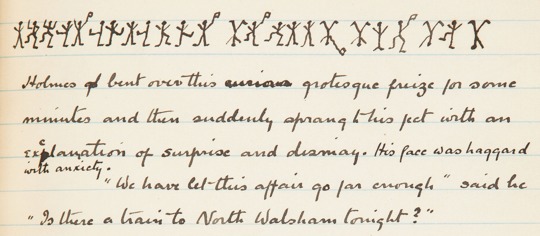 Holmes bent over this curious grotesque frieze for some
minutes and then suddenly sprang to his feet with an
exclanation of surprise and dismay. His face was haggard
with anxiety.
"We have let this affair go far enough" said he
"Is there a train to North Walsham tonight?"